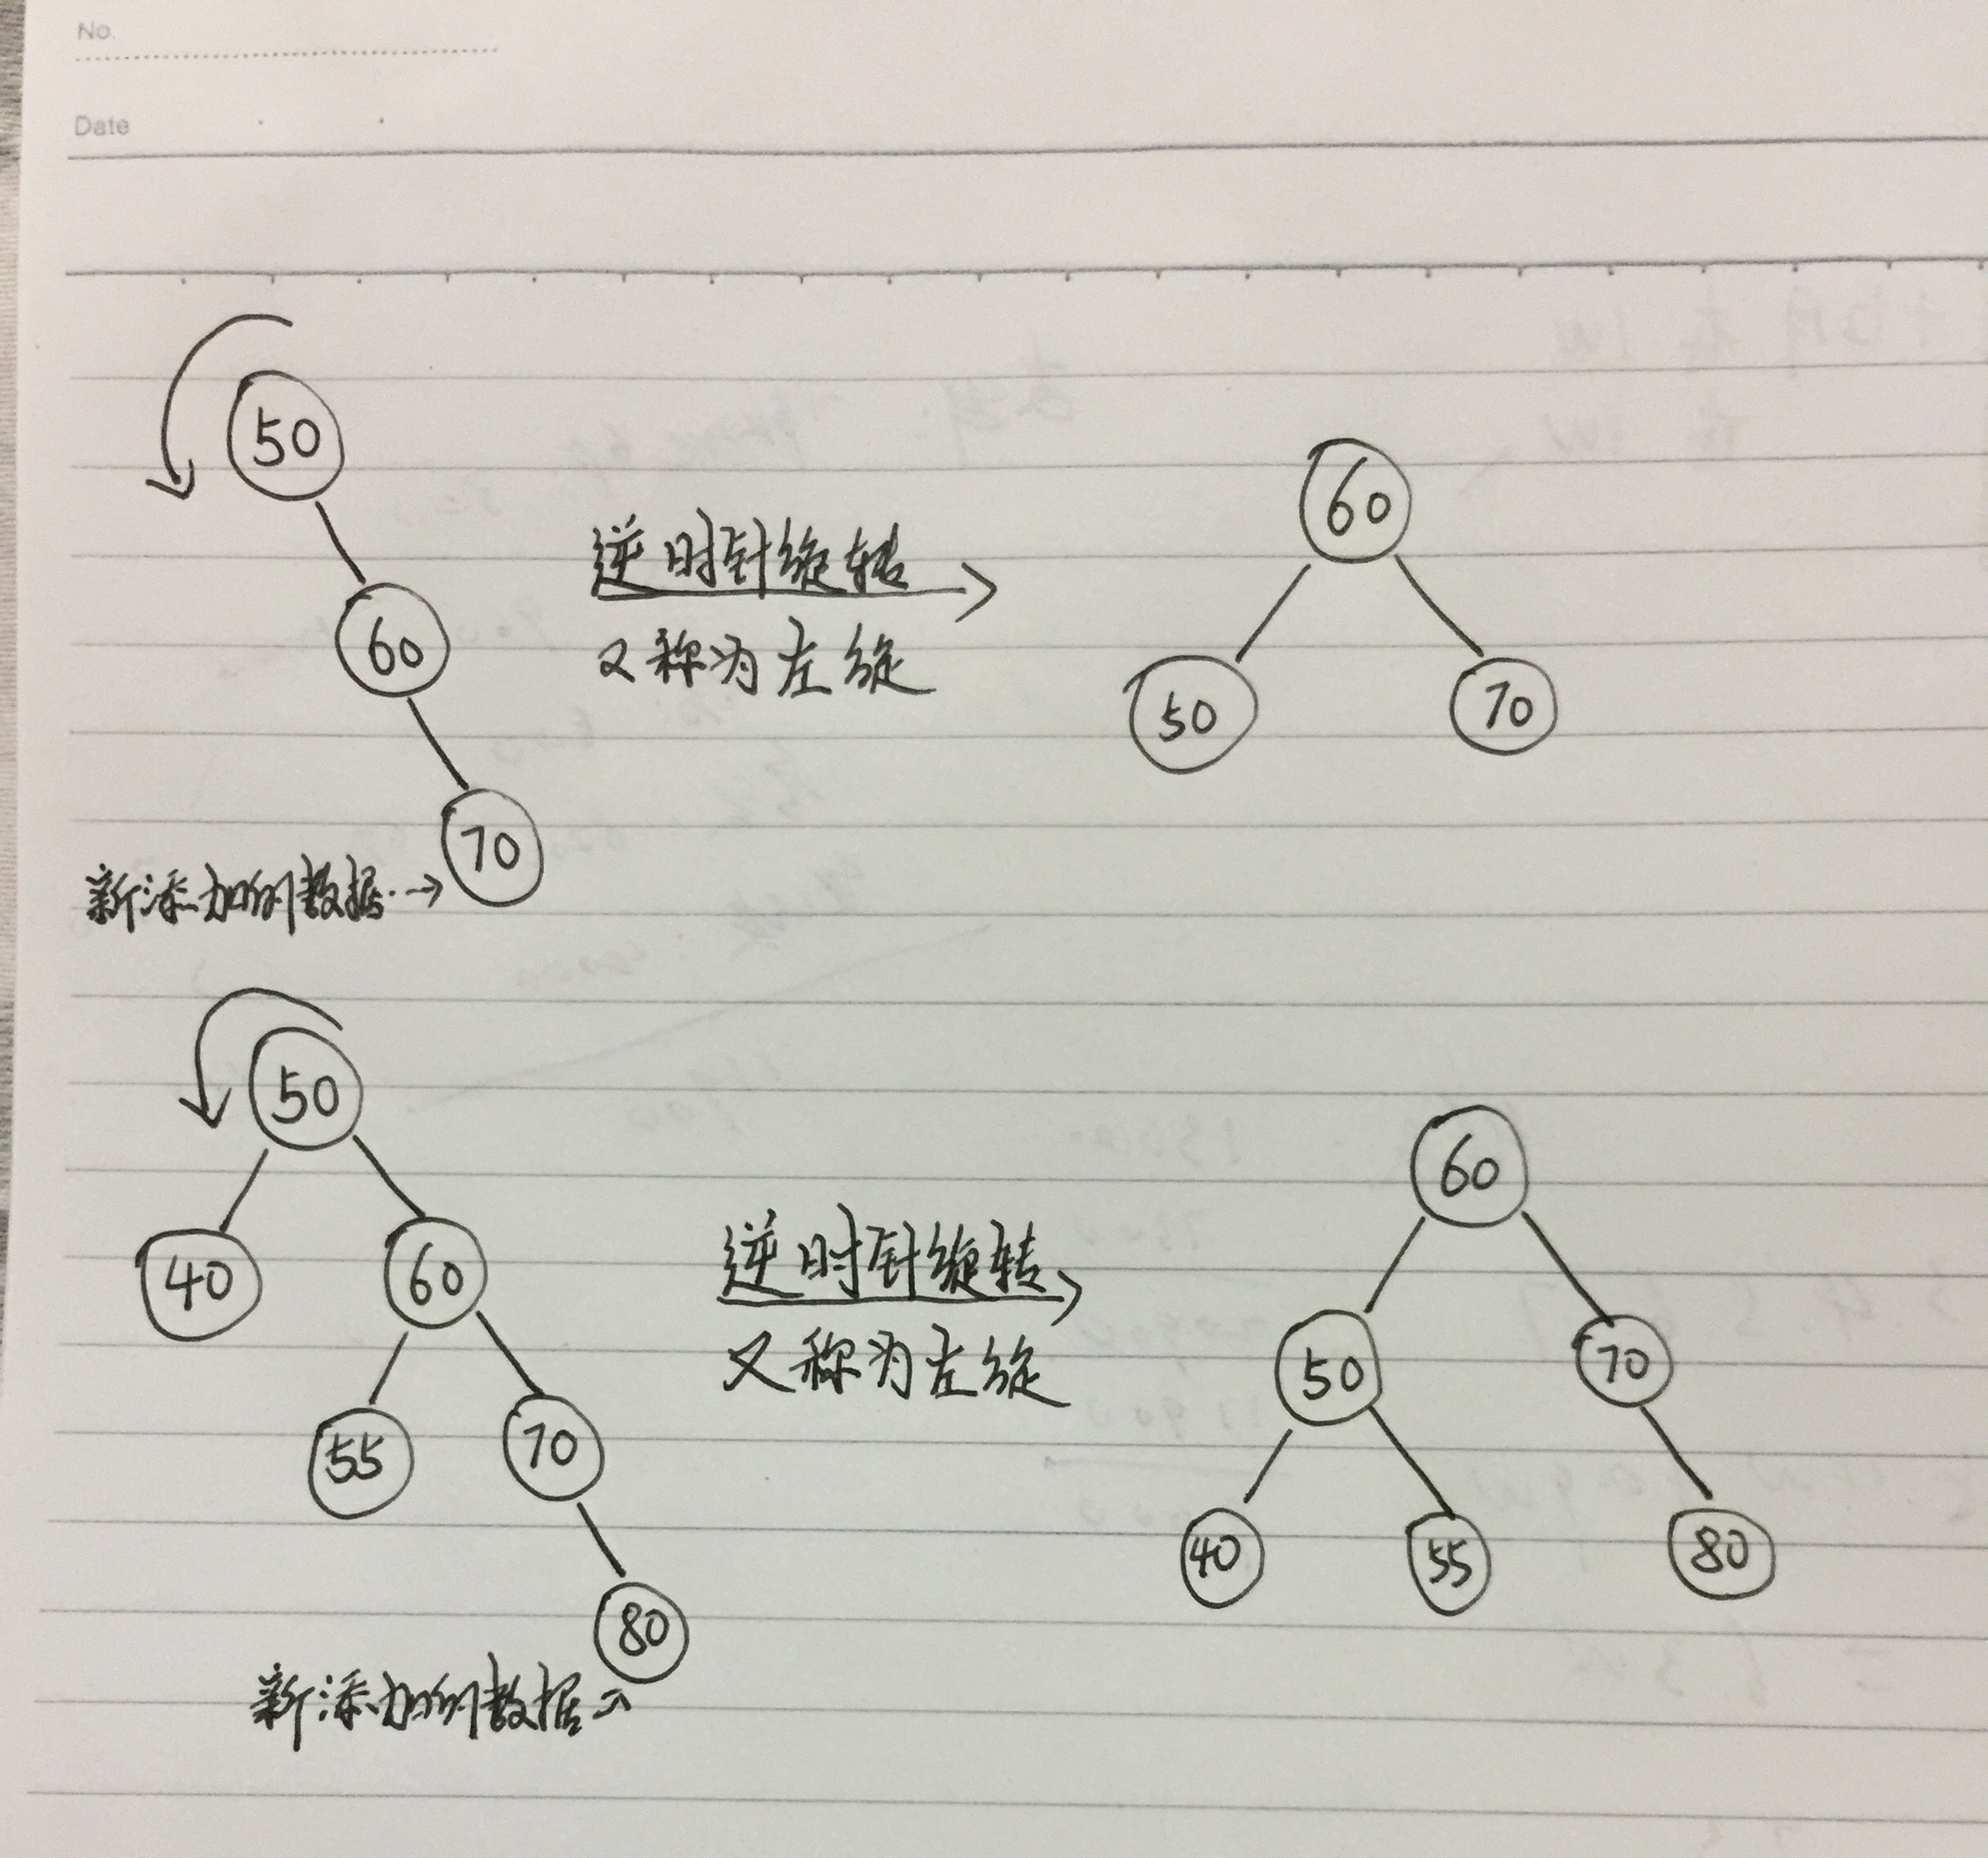 No.
Date
50
60
70
新添加的数据→
逆时针旋转
又称为左旋
60
50
70
50
40
60
55
70
80
新添加的数据→
逆时针旋转
又称为左旋
60
50
70
40
55
80